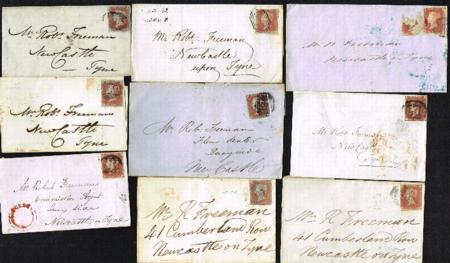 Mr. Robt. Freeman
New Castle
Tyne
Mr. Robt. Freeman
New Castle
upon Tyne
Mr
Newcastle
Tyne
Mr. Robt. Freeman
New Castle
Tyne
Mr. Robt. Freeman
Quayside
New Castle
Mr Robt
New Castle
Mr Robert Freeman
Commission Agent
Quay Side
Newcastle on Tyne
Mr. R Freeman
41 Cumberland Row
Newcastle on Tyne
Mr. R Freeman
41 Cumberland Row
Newcastle on Tyne